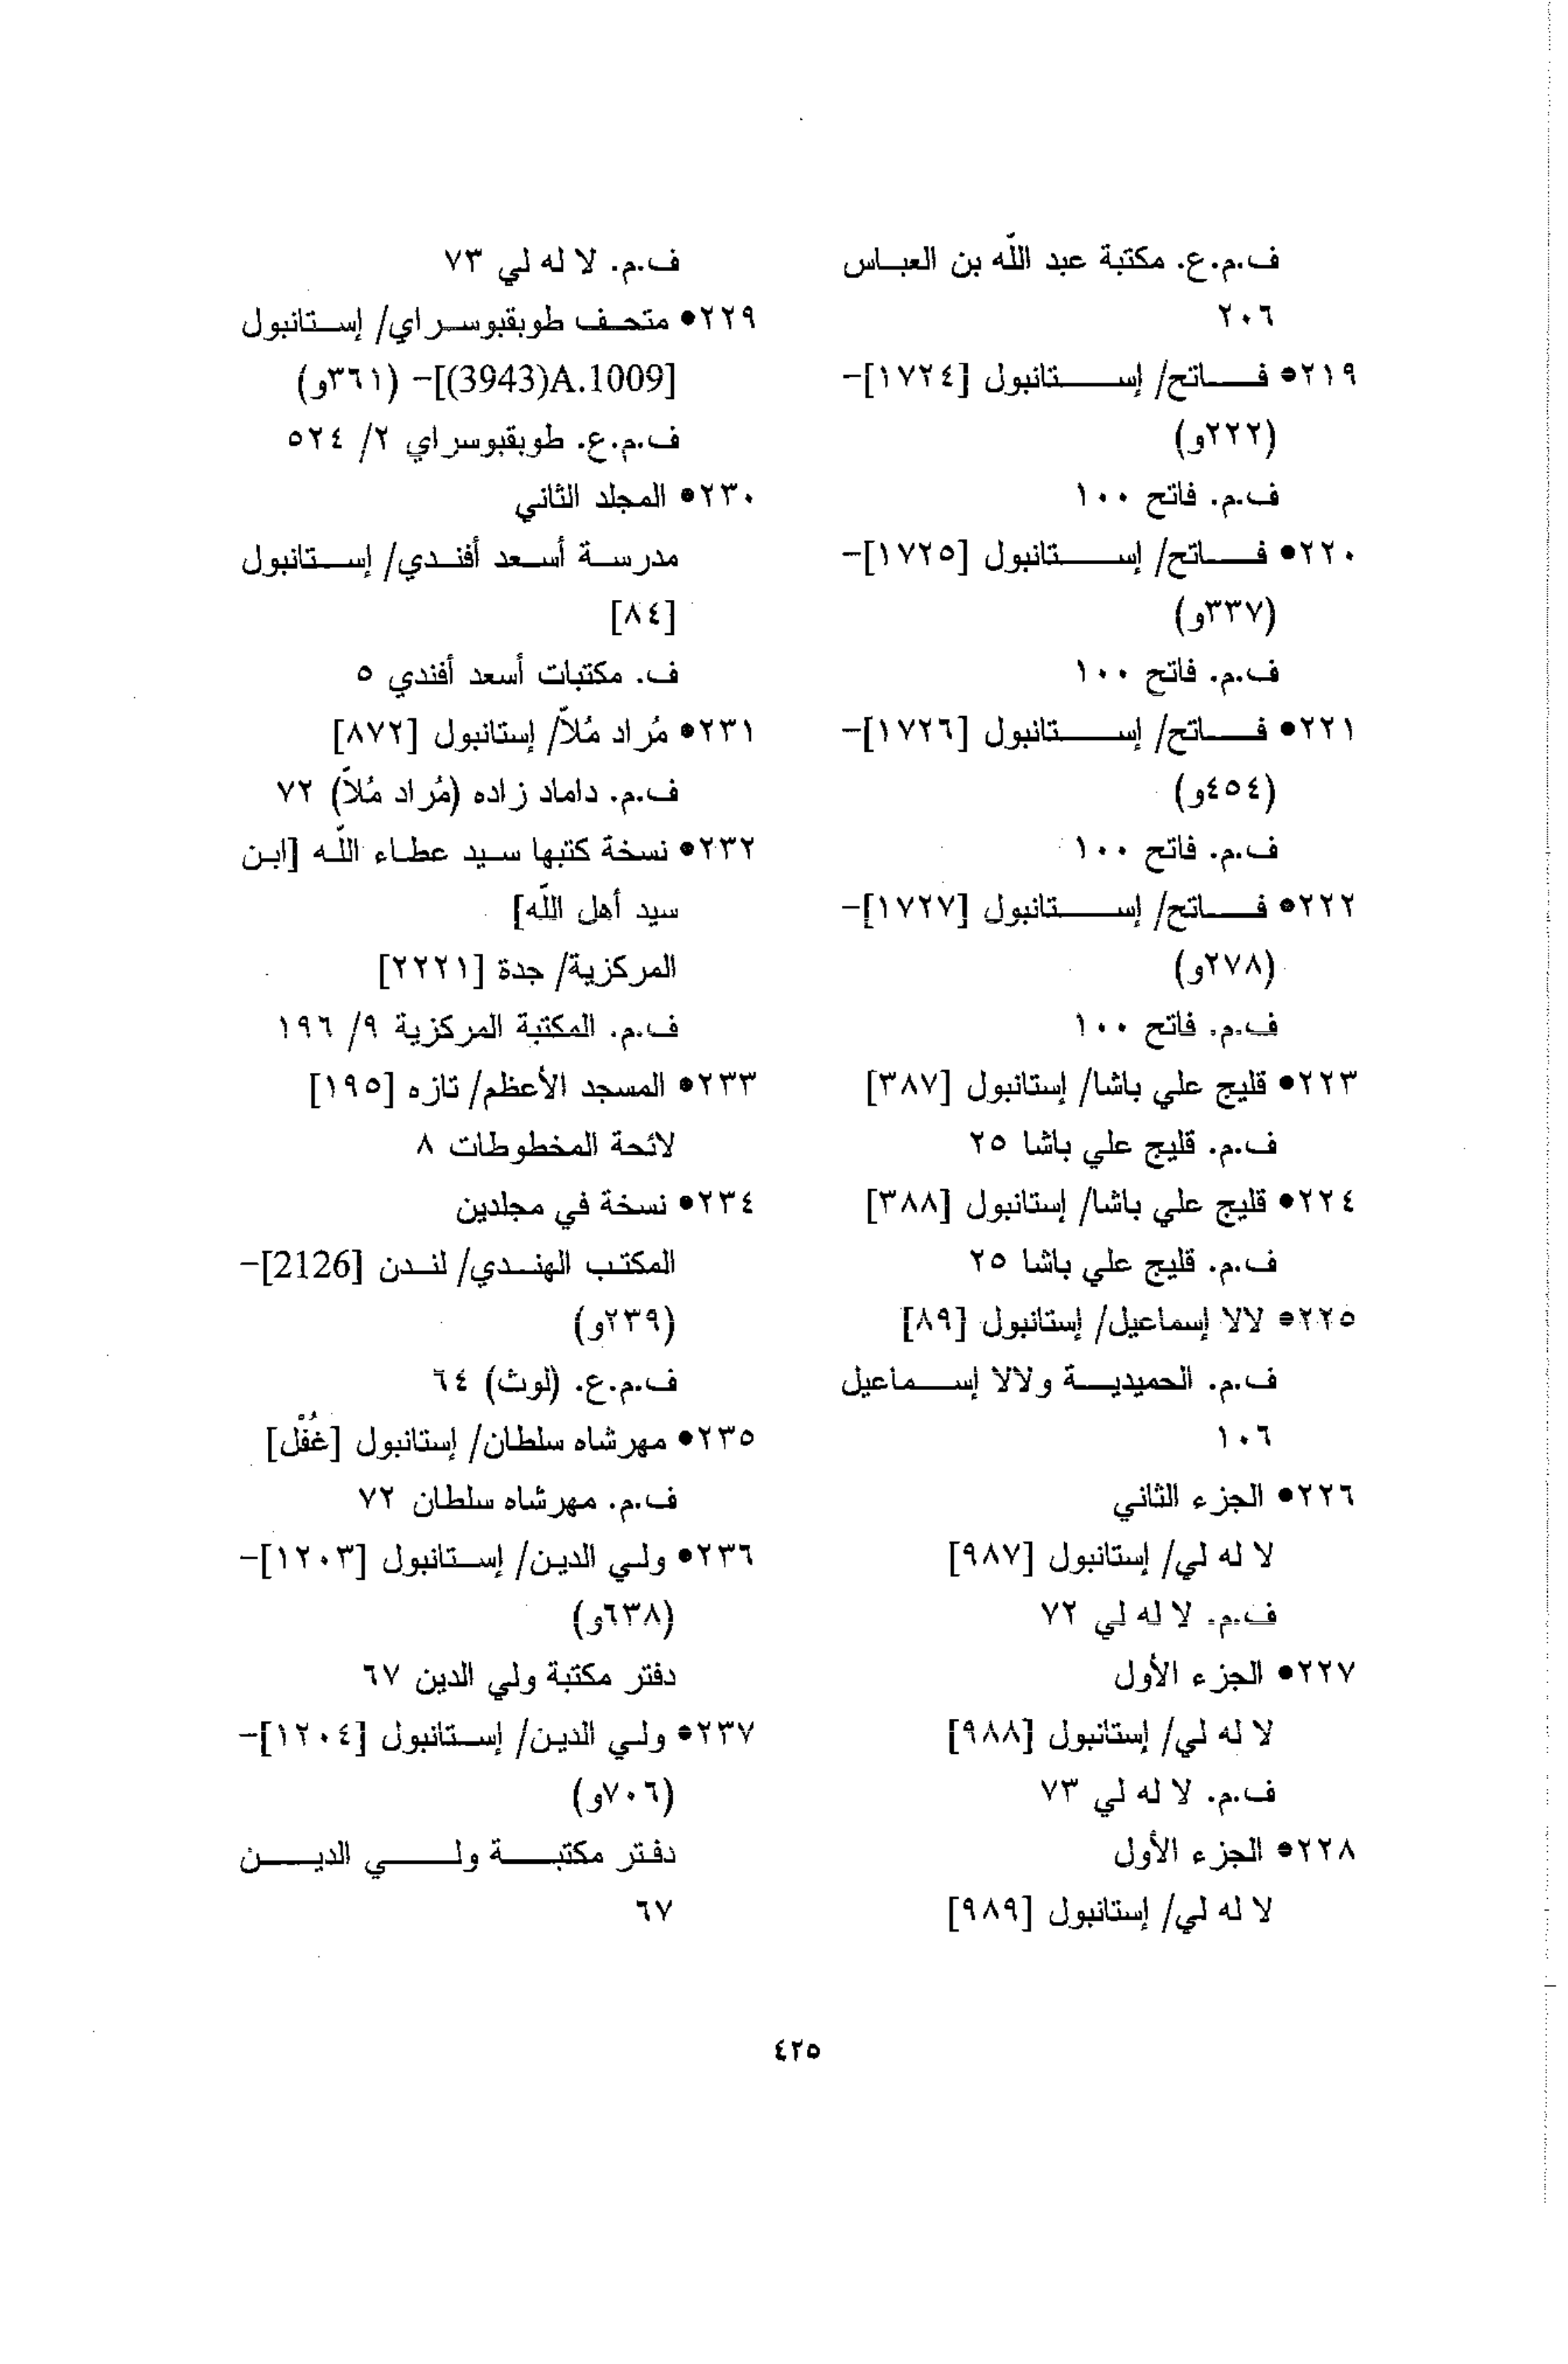 ف.م.ع. مكتبة عبد اللّه بن العباس
٢٠٦
٢١٩• فاتح/ إستانبول [١٧٢٤]-
(٢٢٢و)
ف.م. فاتح ١٠٠
٢٢٠• فاتح/ إستانبول [١٧٢٥]-
(٣٣٧و)
ف.م. فاتح ١٠٠
٢٢١• فاتح/ إستانبول [١٧٢٦]-
(٤٥٤و)
ف.م. فاتح ١٠٠
٢٢٢• فاتح/ إستانبول [١٧٢٧]-
(٢٧٨و)
ف.م. فاتح ١٠٠
٢٢٣• قليج علي باشا/ إستانبول [٣٨٧]
ف.م. قليج علي باشا ٢٥
٢٢٤• قليج علي باشا/ إستانبول [٣٨٨]
ف.م. قليج علي باشا ٢٥
٢٢٥• لالا إسماعيل/ إستانبول [٨٩]
ف.م. الحميدية ولالا إسماعيل
١٠٦
٢٢٦• الجزء الثاني
لا له لي/ إستانبول [٩٨٧]
ف.م. لا له لي ٧٢
٢٢٧• الجزء الأول
لا له لي/ إستانبول [٩٨٨]
ف.م. لا له لي ٧٣
٢٢٨• الجزء الأول
لا له لي/ إستانبول [٩٨٩]
ف.م. لا له لي ٧٣
٢٢٩• متحف طوبقبوسراي/ إستانبول
[A.1009(3943)]- (٣٦١و)
ف.م.ع. طوبقبوسراي ٢/ ٥٢٤
٢٣٠• المجلد الثاني
مدرسة أسعد أفندي/ إستانبول
[٨٤]
ف. مكتبات أسعد أفندي ٥
٢٣١• مُراد مُلاّ/ إستانبول [٨٧٢]
ف.م. داماد زاده (مُراد مُلاّ) ٧٢
٢٣٢• نسخة كتبها سيد عطاء اللّه [ابن
سيد أهل اللّه]
المركزية/ جدة [٢٢٢١]
ف.م. المكتبة المركزية ٩/ ١٩٦
٢٣٣• المسجد الأعظم/ تازه [١٩٥]
لائحة المخطوطات ٨
٢٣٤• نسخة في مجلدين
المكتب الهندي/ لندن [2126]-
(٢٣٩و)
ف.م.ع. (لوث) ٦٤
٢٣٥• مهرشاه سلطان/ إستانبول [غُفْل]
ف.م. مهرشاه سلطان ٧٢
٢٣٦• ولي الدين/ إستانبول [١٢٠٣]-
(٦٣٨و)
دفتر مكتبة ولي الدين ٦٧
٢٣٧• ولي الدين/ إستانبول [١٢٠٤]-
(٧٠٦و)
دفتر مكتبة ولي الدين
٦٧
٤٢٥